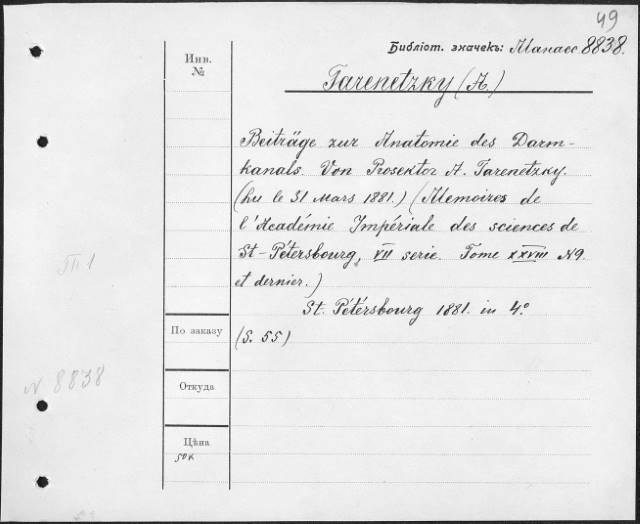 49
Библіот. значекъ: Манасс 8838.
Инв.
№
Tarenetzky (A.)
Beiträge zur Anatomie des Darm-
kanals. Von Prosektor A. Tarenetzky.
(Lu le 31 Mars 1881.) (Memoires de
l'Académie Impériale des sciences de
St-Pétersbourg, VII serie. Tome XXVIII N9.
et dernier.)
St. Pétersbourg 1881. in 4.°
По заказу
(S. 55)
N 8838
Откуда
Цѣна
50к